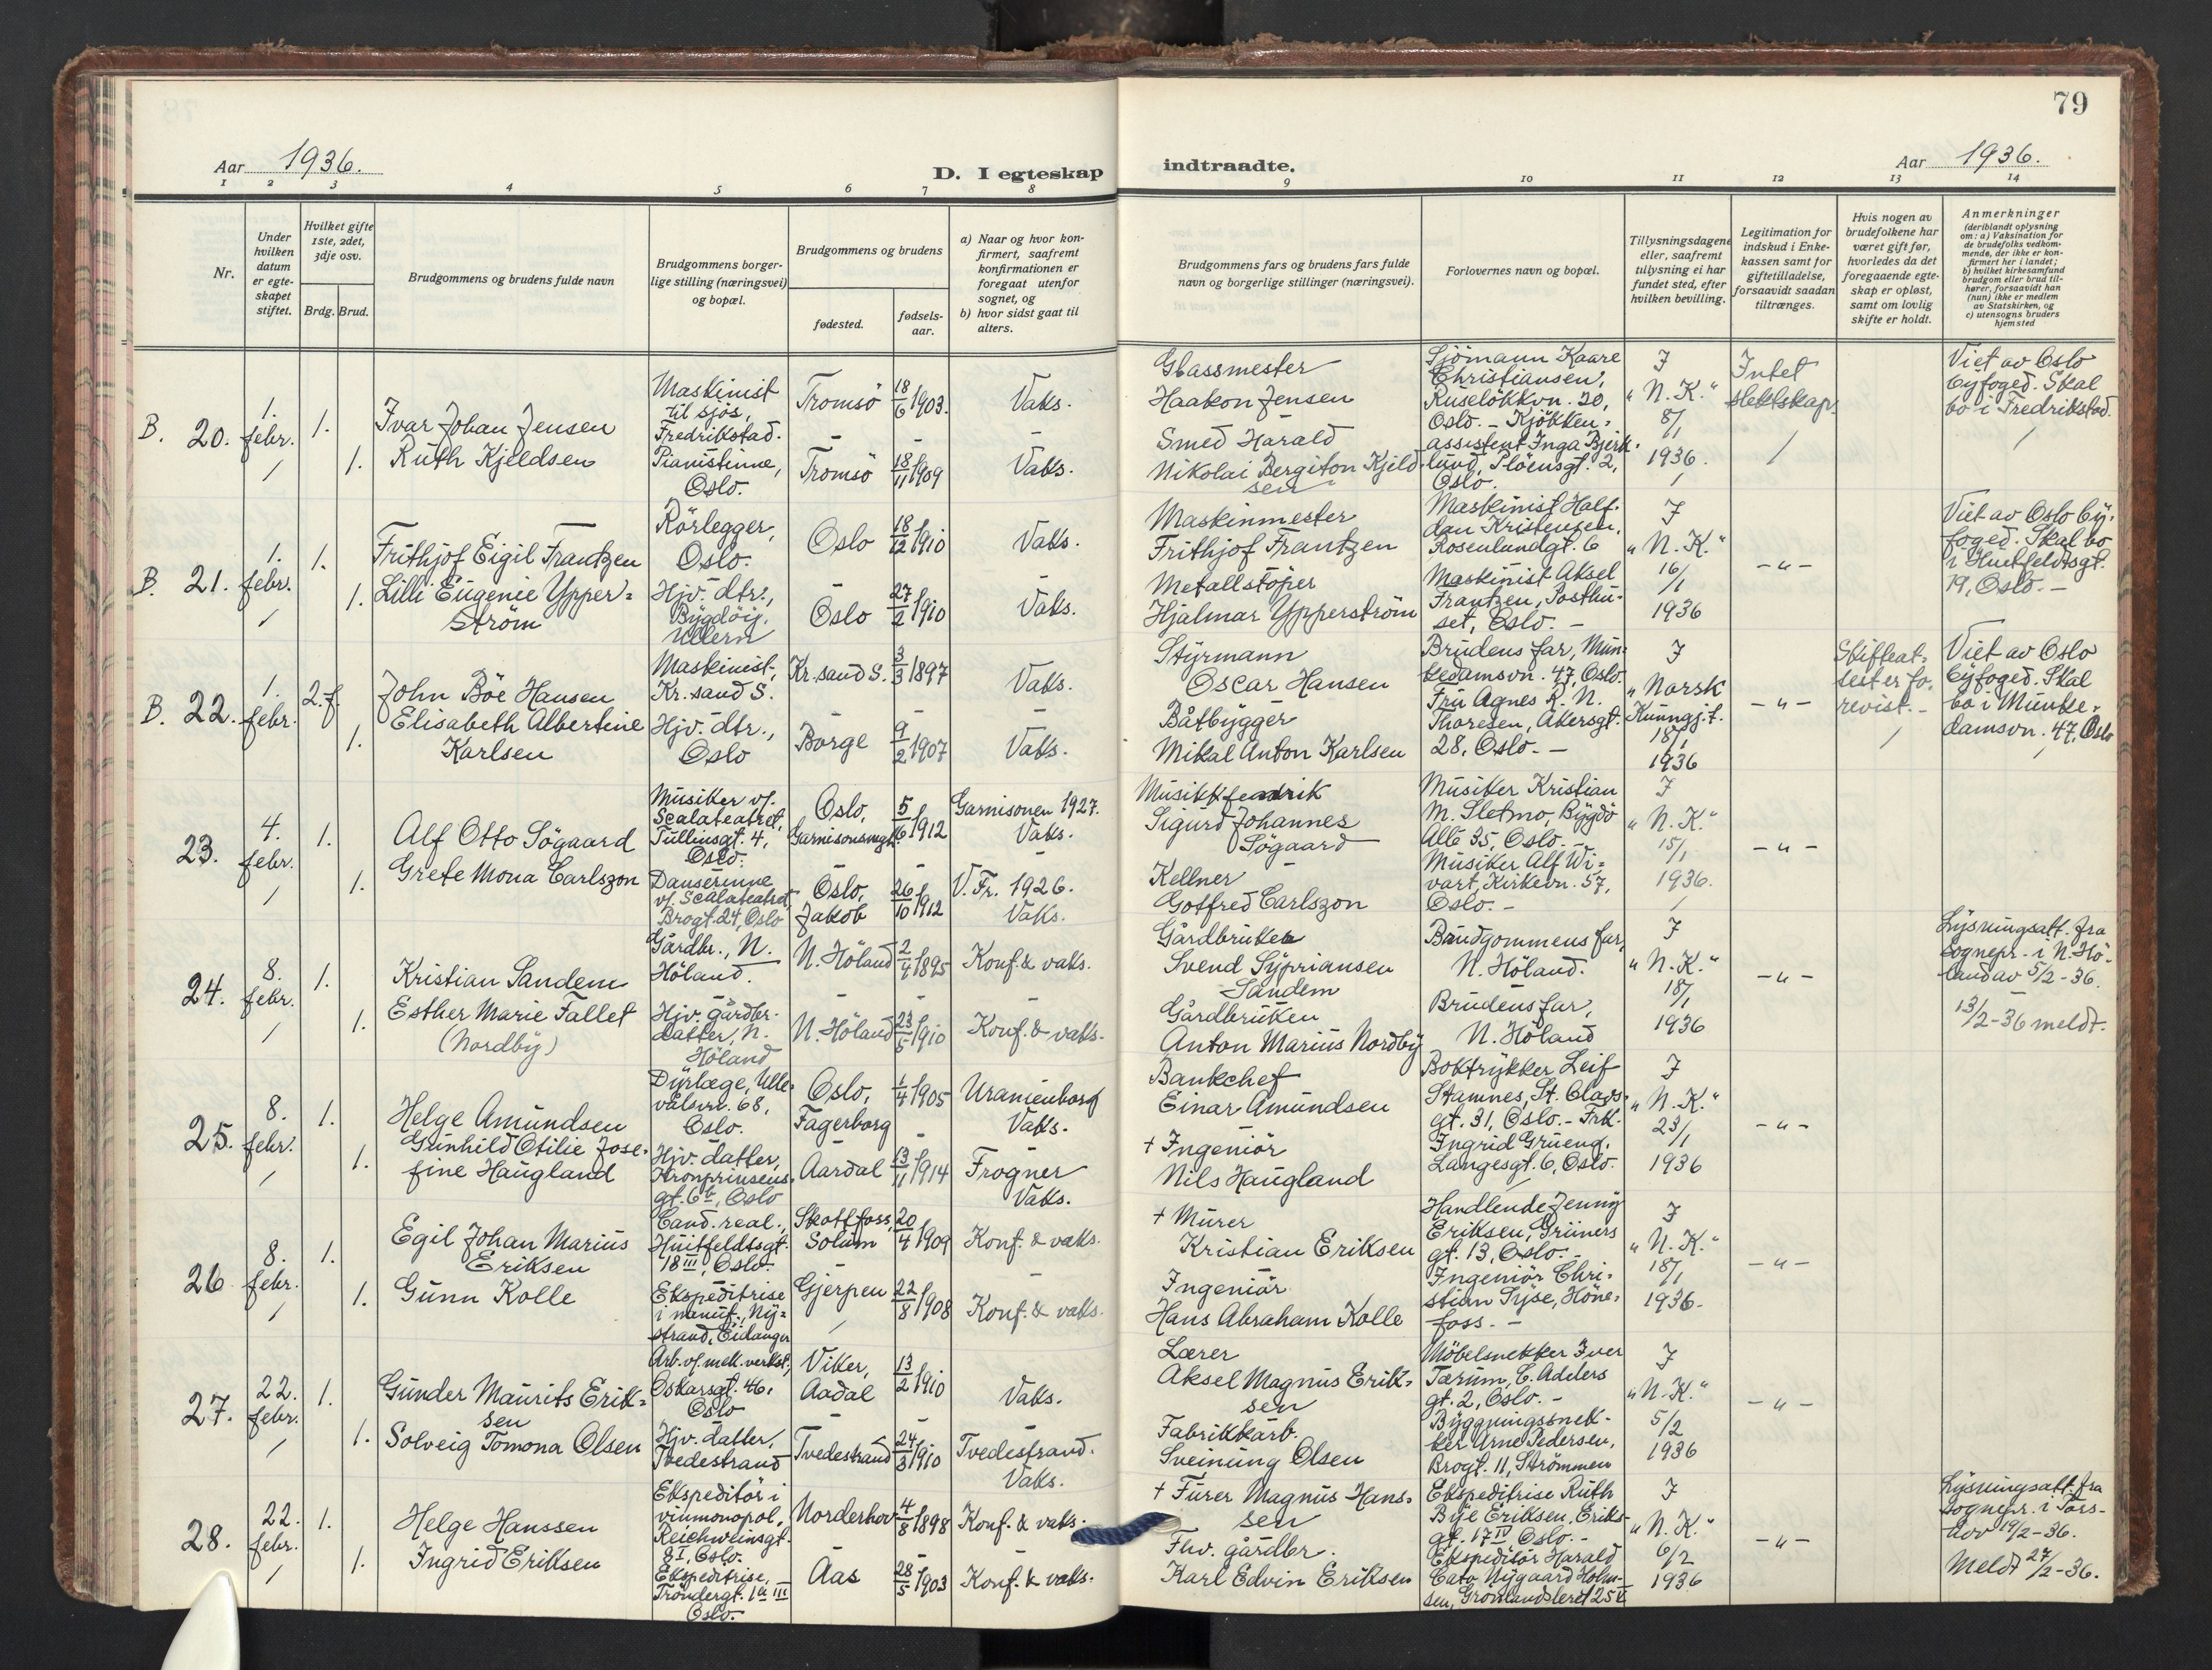 79
Aar 1936.
D. I egteskap indtraadte.
Aar 1936.
1 2 3 4 5 6 7 8 9 10 11 12 13 14
Nr.
Under hvilken datum er egteskapet stiftet.
Hvilket gifte 1ste, 2det, 3dje osv.
Brdg. Brud.
Brudgommens og brudens fulde navn
Brudgommens borgerlige stilling (næringsvei) og bopæl.
Brudgommens og brudens
fødested.
fødselsaar.
a) Naar og hvor konfirmert, saafremt konfirmationen er foregaat utenfor sognet, og
b) hvor sidst gaat til alters.
Brudgommens fars og brudens fars fulde navn og borgerlige stillinger (næringsvei).
Forlovernes navn og bopæl.
Tillysningsdagene eller, saafremt tillysning ei har fundet sted, efter hvilken bevilling.
Legitimation for indskud i Enkekassen samt for giftetilladelse, forsaavidt saadan tiltrænges.
Hvis nogen av brudefolkene har været gift før, hvorledes da det foregaaende egteskap er opløst, samt om lovlig skifte er holdt.
Anmerkninger (deriblandt oplysning om: a) Vaksination for de brudefolks vedkommende, der ikke er konfirmert her i landet; b) hvilket kirkesamfund brudgom eller brud tilhører, forsaavidt han (hun) ikke er medlem av Statskirken, og c) utensogns bruders hjemsted
B. 20. 1. febr. 1.
Ivar Johan Jensen
Maskinist til sjøs, Fredrikstad.
Tromsö 18/6 1903. Vaks.
Glassmester Haakon Jensen
1. Ruth Kjeldsen
Pianistinne, Oslo.
Tromsö 18/11 1909 Vaks.
Smed Harald Nikolai Bergiton Kjeldsen
Sjömann Kaare Christiansen, Ruselökkvn. 20, Oslo. - Kjökkenassistent Inga Bjerklund, Plöensgt. 2, Oslo.
I "N. K." 8/1 1936.
Intet slektskap.
Viet av Oslo byfoged. Skal bo i Fredrikstad.
B. 21. 1. febr. 1.
Frithjof Eigil Frantzen
Rörlegger, Oslo.
Oslo 18/12 1910 Vaks.
Maskinmester Frithjof Frantzen
1. Lilli Eugenie Ypperström
Hjv. dtr., Bygdöy, Ullern
Oslo 27/2 1910 Vaks.
Metallstöper Hjalmar Ypperström
Maskinist Halfdan Kristensen, Rosenlundgt. 6
Maskinist Aksel Frantzen, Posthuset, Oslo. -
I "N. K." 16/1 1936
- " -
Viet av Oslo byfoged. Skal bo i Huitfeldtsgt. 19, Oslo. -
B. 22. 1. febr. 2. f.
John Böe Hansen
Maskinist, Kr.sand S.
Kr.sand S. 3/3 1897 Vaks.
Styrmann Oscar Hansen
1. Elisabeth Albertine Karlsen
Hjv. dtr., Oslo
Borge 9/2 1907 Vaks.
Båtbygger Mikal Anton Karlsen
Brudens far, Munkedamsvn. 47, Oslo.
Fru Agnes R. N. Thoresen, Akersgt. 28, Oslo. -
I "Norsk Kunngj.t. 18/1 1936
- " -
Skifteattest er forevist. -
Viet av Oslo byfoged. Skal bo i Munkedamsvn. 47, Oslo
23. 4. febr. 1.
Alf Otto Sögaard
Musiker v/. Scalateatret, Tullinsgt. 4, Oslo.
Oslo, Garnisonsmgh. 5/6 1912
Garnisonen 1927. Vaks.
Musikkfendrik Sigurd Johannes Sögaard
1. Grete Mona Carlszon
Danserinne v/. Scalateatret, Brogt. 24, Oslo
Oslo, Jakob 26/10 1912
V. Fr. 1926. Vaks.
Kellner Gotfred Carlszon
Musiker Kristian M. Sletmo, Bygdö Allé 35, Oslo. -
Musiker Alf Wivart, Kirkevn. 57, Oslo. -
I "N. K." 15/1 1936.
- " -
24. 8. febr. 1.
Kristian Sandem
Gårdbr., N. Höland.
N. Höland 2/4 1895 Konf. & vaks.
Gårdbruker Svend Sypriansen Sandem
1. Esther Marie Fallet (Nordby)
Hjv. gårdbr. datter, N. Höland
N. Höland 23/5 1910 Konf. & vaks.
Gårdbruker Anton Marius Nordby
Brudgommens far, N. Höland.
Brudens far, N. Höland
I "N. K." 18/1 1936
- " -
Lysningsatt. fra sognepr. i N. Höland av 5/2-36.
13/2-36 meldt.
25. 8. febr. 1.
Helge Amundsen
Dyrlæge, Ullevålsvn. 68, Oslo.
Oslo, Fagerborg 1/4 1905
Uranienborg Vaks.
Bankchef Einar Amundsen
1. Gunhild Otilie Josefine Haugland
Hjv. datter, Kronprinsensgt. 6b, Oslo
Aardal 13/11 1914
Frogner Vaks.
+ Ingeniör Nils Haugland
Boktrykker Leif Stamnes, St. Olavsgt. 31, Oslo. - Frk. Ingrid Grueng, Langesgt. 6, Oslo.
I "N. K." 23/1 1936
- " -
26 8. febr. 1.
Egil Johan Marius Eriksen
Cand. real., Huitfeldtsgt. 18 III, Oslo.
Skotfoss, Solum 20/4 1909 Konf. & vaks.
+ Murer Kristian Eriksen
1. Gunn Kolle
Ekspeditrise i manuf., Nystrand, Eidanger
Gjerpen 22/8 1908 Konf. & vaks.
Ingeniör Hans Abraham Kolle
Handlende Jenny Eriksen, Grüners gt. 13, Oslo. -
Ingeniör Christian Syse, Hönefoss. -
I "N. K." 18/1 1936.
- " -
27. 22. febr. 1.
Gunder Maurits Eriksen
Arb. v/. mek. verkst., Oskarsgt. 46, Oslo
Viker, Aadal 13/2 1910 Vaks.
Lærer Aksel Magnus Eriksen
1. Solveig Tomona Olsen
Hjv. datter, Tvedestrand
Tvedestrand 24/3 1910
Tvedestrand. Vaks.
Fabrikkarb. Sveinung Olsen
Möbelsnekker Iver Tærum, C. Adelers gt. 2, Oslo. -
Bygningssnekker Arne Pedersen, Brogt. 11, Strömmen
I "N. K." 5/2 1936
- " -
28. 22. febr. 1.
Helge Hanssen
Ekspeditör i vinmonopol, Reichweinsgt. 8 I, Oslo.
Norderhov 4/8 1898 Konf. & vaks.
+ Furer Magnus Hanssen
1. Ingrid Eriksen
Ekspeditrise, Tröndergt. 1a III Oslo.
Aas 28/5 1903 Konf. & vaks.
Fhv. gårdbr. Karl Edvin Eriksen
Ekspeditrise Ruth Bye Eriksen, Eriksgt. 17 IV Oslo. -
Ekspeditör Harald Cato Nygaard Holmsen, Grönlandsleret 25 V
I "N. K." 6/2 1936
- " -
Lysningsatt. fra sognepr. i 19/2-36.
Meldt 27/2-36.